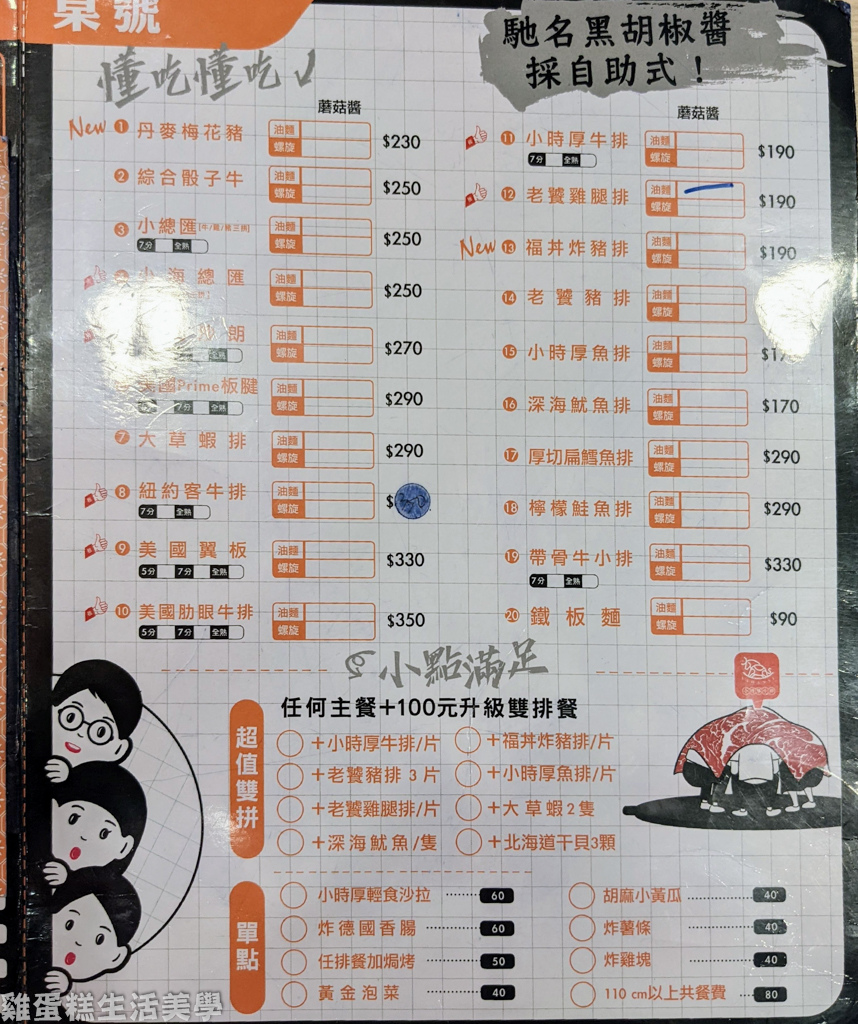 桌號
懂吃懂吃
馳名黑胡椒醬
採自助式！
蘑菇醬
New 1 丹麥梅花豬 油麵 螺旋 $230
2 綜合骰子牛 油麵 螺旋 $250
3 小總匯 [牛/雞/豬三拼] 油麵 螺旋 $250
7分 全熟
小海總匯 油麵 螺旋 $250
朗 油麵 螺旋 $270
全熟
美國Prime板腱 油麵 螺旋 $290
7分 全熟
7 大草蝦排 油麵 螺旋 $290
8 紐約客牛排 油麵 螺旋 $
7分 全熟
9 美國翼板 油麵 螺旋 $330
5分 7分 全熟
10 美國肋眼牛排 油麵 螺旋 $350
5分 7分 全熟
蘑菇醬
11 小時厚牛排 油麵 螺旋 $190
7分 全熟
12 老饕雞腿排 油麵 螺旋 $190
New 13 福丼炸豬排 油麵 螺旋 $190
14 老饕豬排 油麵 螺旋
15 小時厚魚排 油麵 螺旋
16 深海魷魚排 油麵 螺旋 $170
17 厚切扁鱈魚排 油麵 螺旋 $290
18 檸檬鮭魚排 油麵 螺旋 $290
19 帶骨牛小排 油麵 螺旋 $330
7分 全熟
20 鐵板麵 油麵 螺旋 $90
小點滿足
超值雙拼
任何主餐+100元升級雙排餐
+小時厚牛排/片 +福丼炸豬排/片
+老饕豬排 3片 +小時厚魚排/片
+老饕雞腿排/片 +大草蝦2隻
+深海魷魚/隻 +北海道干貝3顆
單點
小時厚輕食沙拉 60 胡麻小黃瓜 40
炸德國香腸 60 炸薯條 40
任排餐加焗烤 50 炸雞塊 40
黃金泡菜 40 110 cm以上共餐費 80
雞蛋糕生活美學